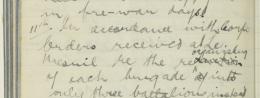 in pre-war days.
11th In accordance with Corps
orders received a de
re the organising
of each brigade into
only three battalions instead